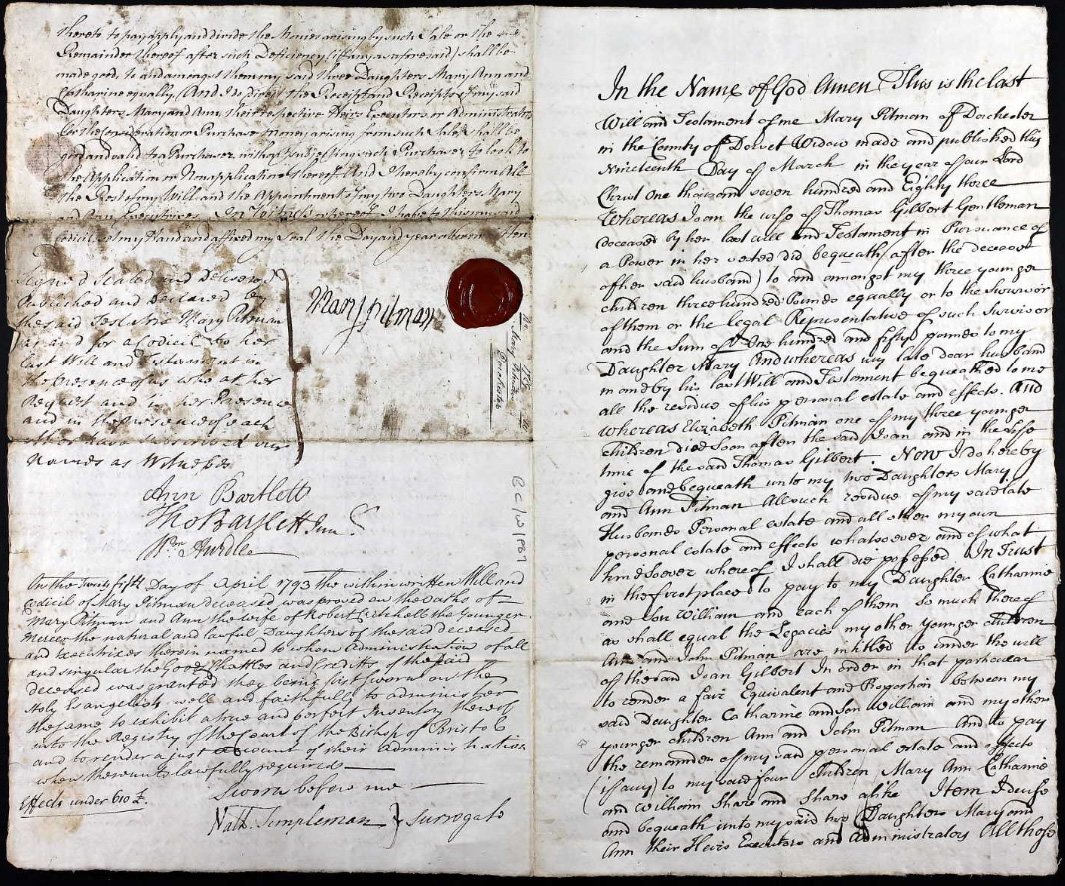 thereto to pay apply and divide the Monies arising by such Sale or the
Remainder thereof after such Deficiency (if any as aforesaid) shall be
made good to and amongst them my said three Daughters Mary Ann and
Catharine equally, And I do direct the Receipt and Receipts of my said
Daughters Mary and Ann their respective Heirs Executors or Administrators
for the consideration or Purchase money arising from such Sale shall be
good and valid to a Purchaser without obliging such Purchaser to look to
the Application or Nonapplication thereof And I hereby confirm All
the Rest of my Will and the Appointment of my two Daughters Mary
and Ann Executrixes In Witness whereof I have to this my said
Codicil set my Hand and affixed my Seal the Day and year above written
Signed Sealed and Delivered
Published and Declared by
the said Testatrix Mary Pitman
as and for a Codicil to her
last Will and Testament in
the Presence of us who at her
Request and in her Presence
and in the Presence of each
other have subscribed our
Names as Witnesses
Mary Pitman
Ann Bartlett
Tho Bartlett Junr
Wm
On the Twenty fifth Day of April 1793 the within written Will and
Codicil of Mary Pitman deceased was proved on the Oaths of
Mary Pitman and Ann the wife of Robert the younger
Mercer the natural and lawful Daughters of the said deceased
and Executrixes therein named to whom Administration of all
and singular the Goods Chattles and Credits of the said
deceased was granted they being first sworn on the
Holy Evangelists well and faithfully to administer
the same to exhibit a true and perfect Inventory thereof
into the Registry of the Court of the Bishop of Bristol
and to render a just account of their Administration
when thereunto lawfully required
Sworn before me
Effects under 610 £.
Nath. Templeman } Surrogate
In the Name of God Amen This is the last
Will and Testament of me Mary Pitman of Dorchester
in the County of Dorset Widow made and published this
Nineteenth Day of March in the year of our Lord
Christ One thousand seven hundred and Eighty three
Whereas Joan the wife of Thomas Gilbert Gentleman
deceased by her last will and Testament in Pursuance of
a Power in her vested did bequeath (after the decease
of her said husband) to and amongst my three younger
children three hundred pounds equally or to the survivor
of them or the legal Representative of such survivor
and the sum of One hundred and fifty pounds to my
Daughter Mary And whereas my late dear husband
in and by his last Will and Testament bequeathed to me
all the residue of his personal estate and effects. And
whereas Elizabeth Pitman one of my three younger
children died soon after the said Joan and in the life
time of the said Thomas Gilbert. Now I do hereby
give and bequeath unto my two Daughters Mary
and Ann Pitman All such residue of my said late
Husbands Personal estate and all other my own
personal estate and effects whatsoever and of what
kind soever whereof I shall die possessed In Trust
in the first place to pay to my Daughter Catharine
and Son William and each of them so much thereof
as shall equal the Legacies my other younger children
Ann and John Pitman are intitled to under the will
of the said Joan Gilbert In order in that particular
to render a fair Equivalent and Proportion between my
said Daughter Catharine and Son William and my other
younger children Ann and John Pitman And to pay
the remainder of my said personal estate and effects
(if any) to my said four children Mary Ann Catharine
and William Share and share alike Item I devise
and bequeath unto my said two Daughters Mary and
Ann their Heirs Executors and Administrators All those